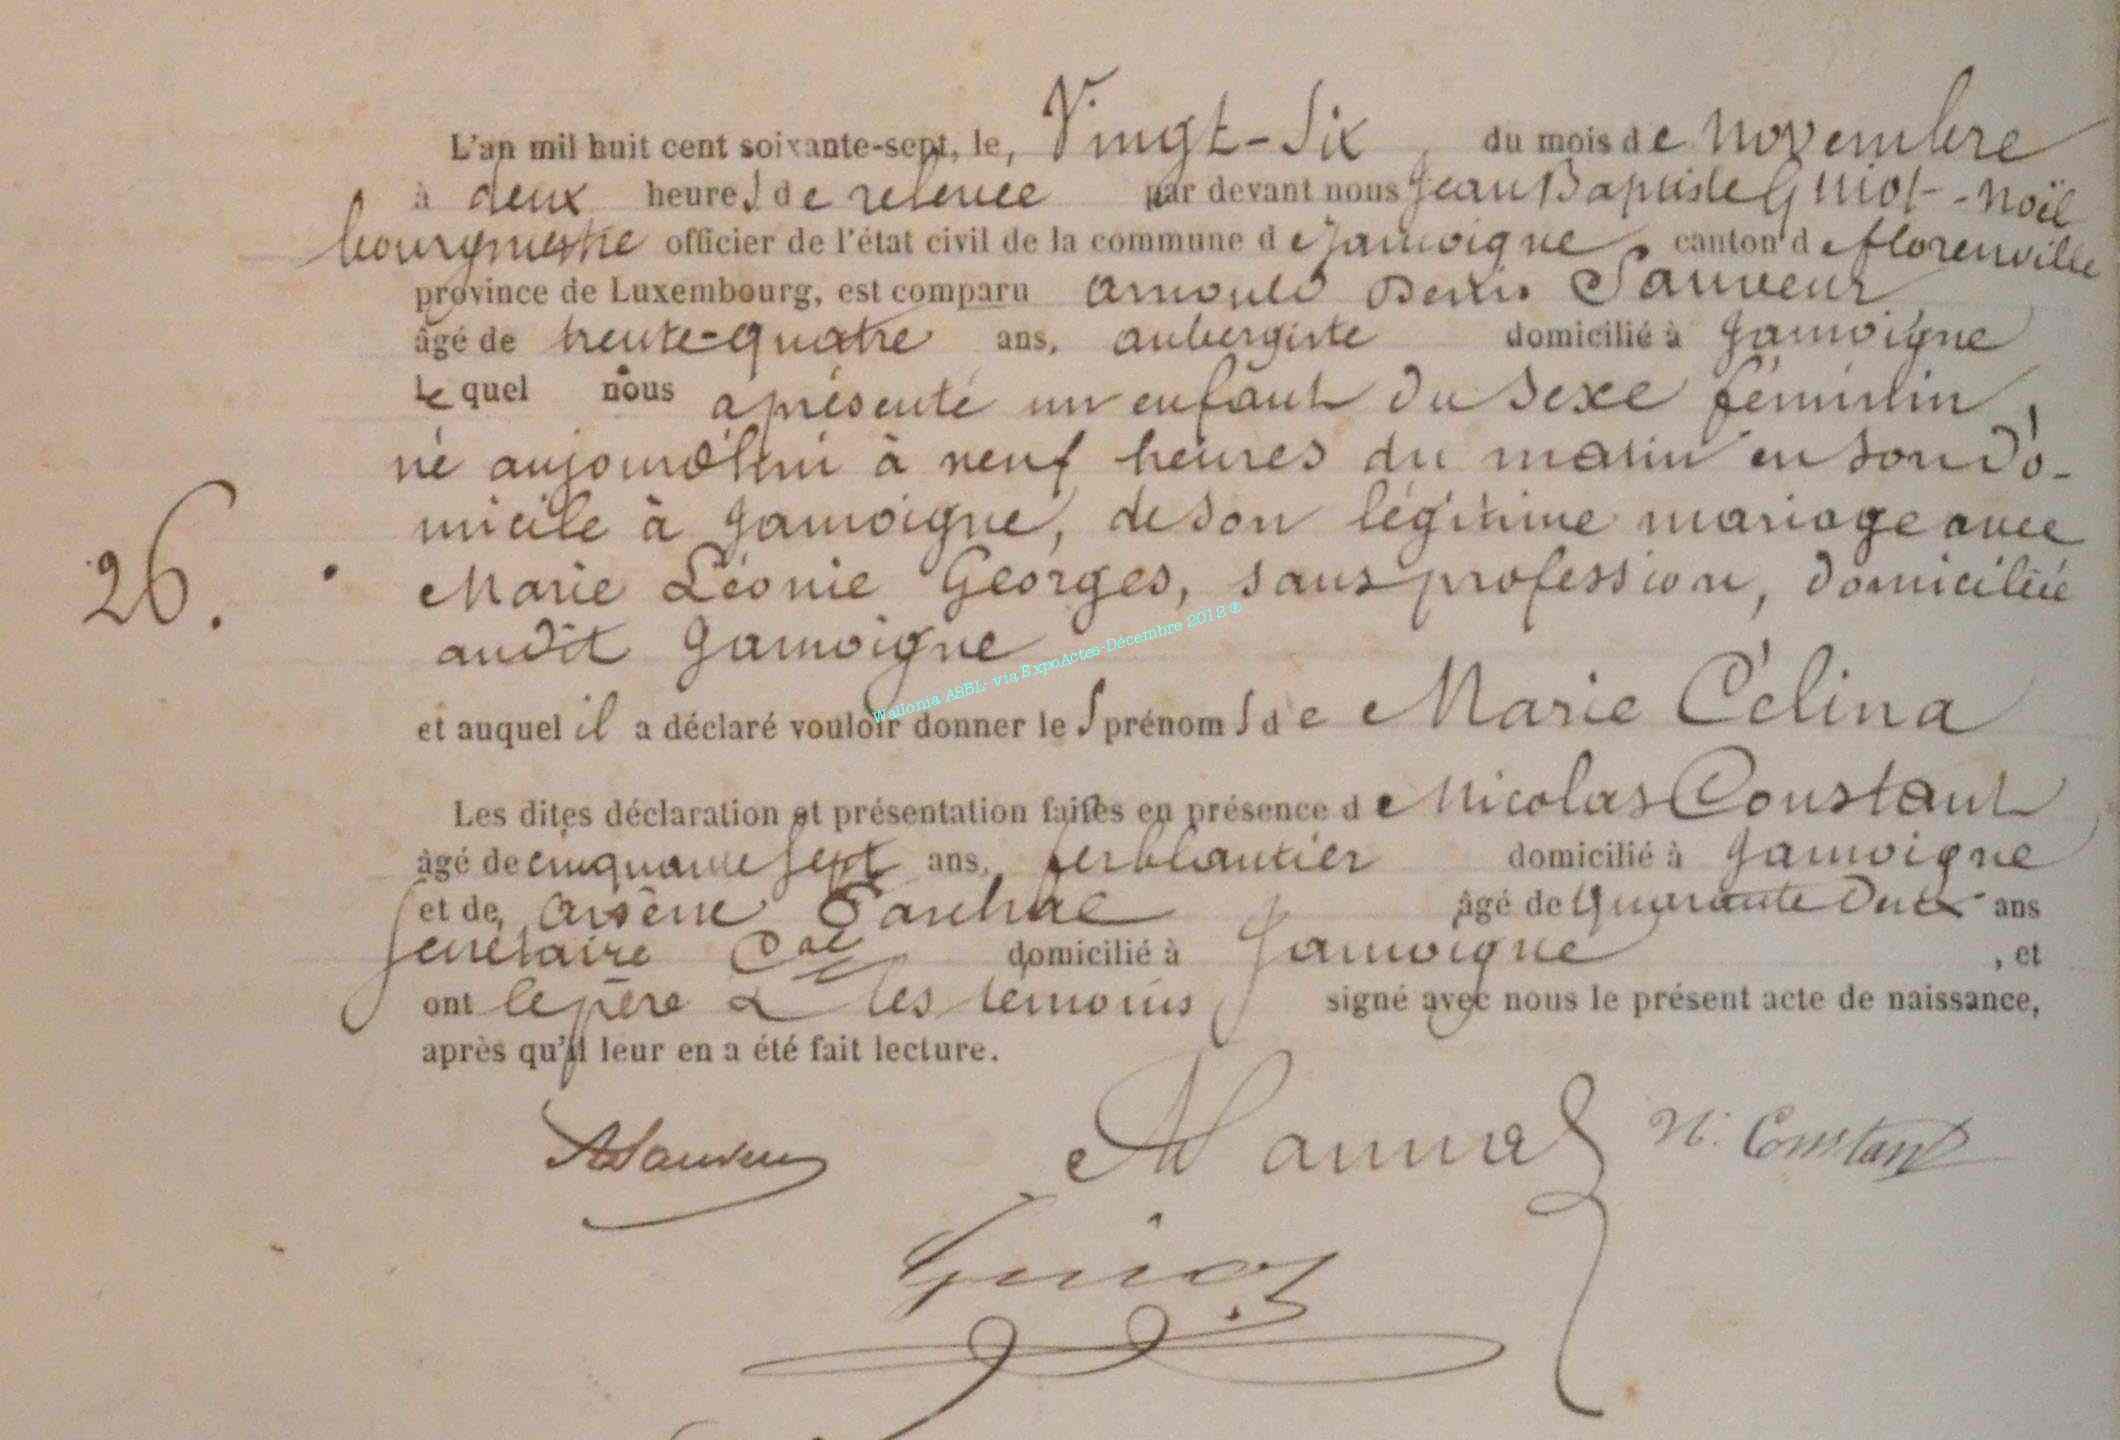 L'an mil huit cent soixante-sept, le, Vingt-Six, du mois de Novembre
à deux heures de relevée par devant nous Jean Baptiste Guiot-Noël
bourgmestre officier de l'état civil de la commune de Jamoigne, canton de florenville
province de Luxembourg, est comparu Arnould Denis Sauveur
âgé de trente-quatre ans, aubergiste domicilié à Jamoigne
Lequel nous a présenté un enfant du sexe féminin,
né aujourd'hui à neuf heures du matin en son do-
micile à Jamoigne, de son légitime mariage avec
26. Marie Léonie Georges, sans profession, domiciliée
audit Jamoigne
et auquel il a déclaré vouloir donner les prénoms de Marie Célina
Les dites déclaration et présentation faites en présence de Nicolas Constant
âgé de cinquante sept ans, ferblantier domicilié à Jamoigne
et de, Arsène âgé de Quarante Deux ans
secrétaire Cal domicilié à Jamoigne, et
ont le père & les témoins signé avec nous le présent acte de naissance,
après qu'il leur en a été fait lecture.
ASauveur N. Constant
Guiot
Wallonia ASBL- via ExpoActes-Décembre 2012 ®